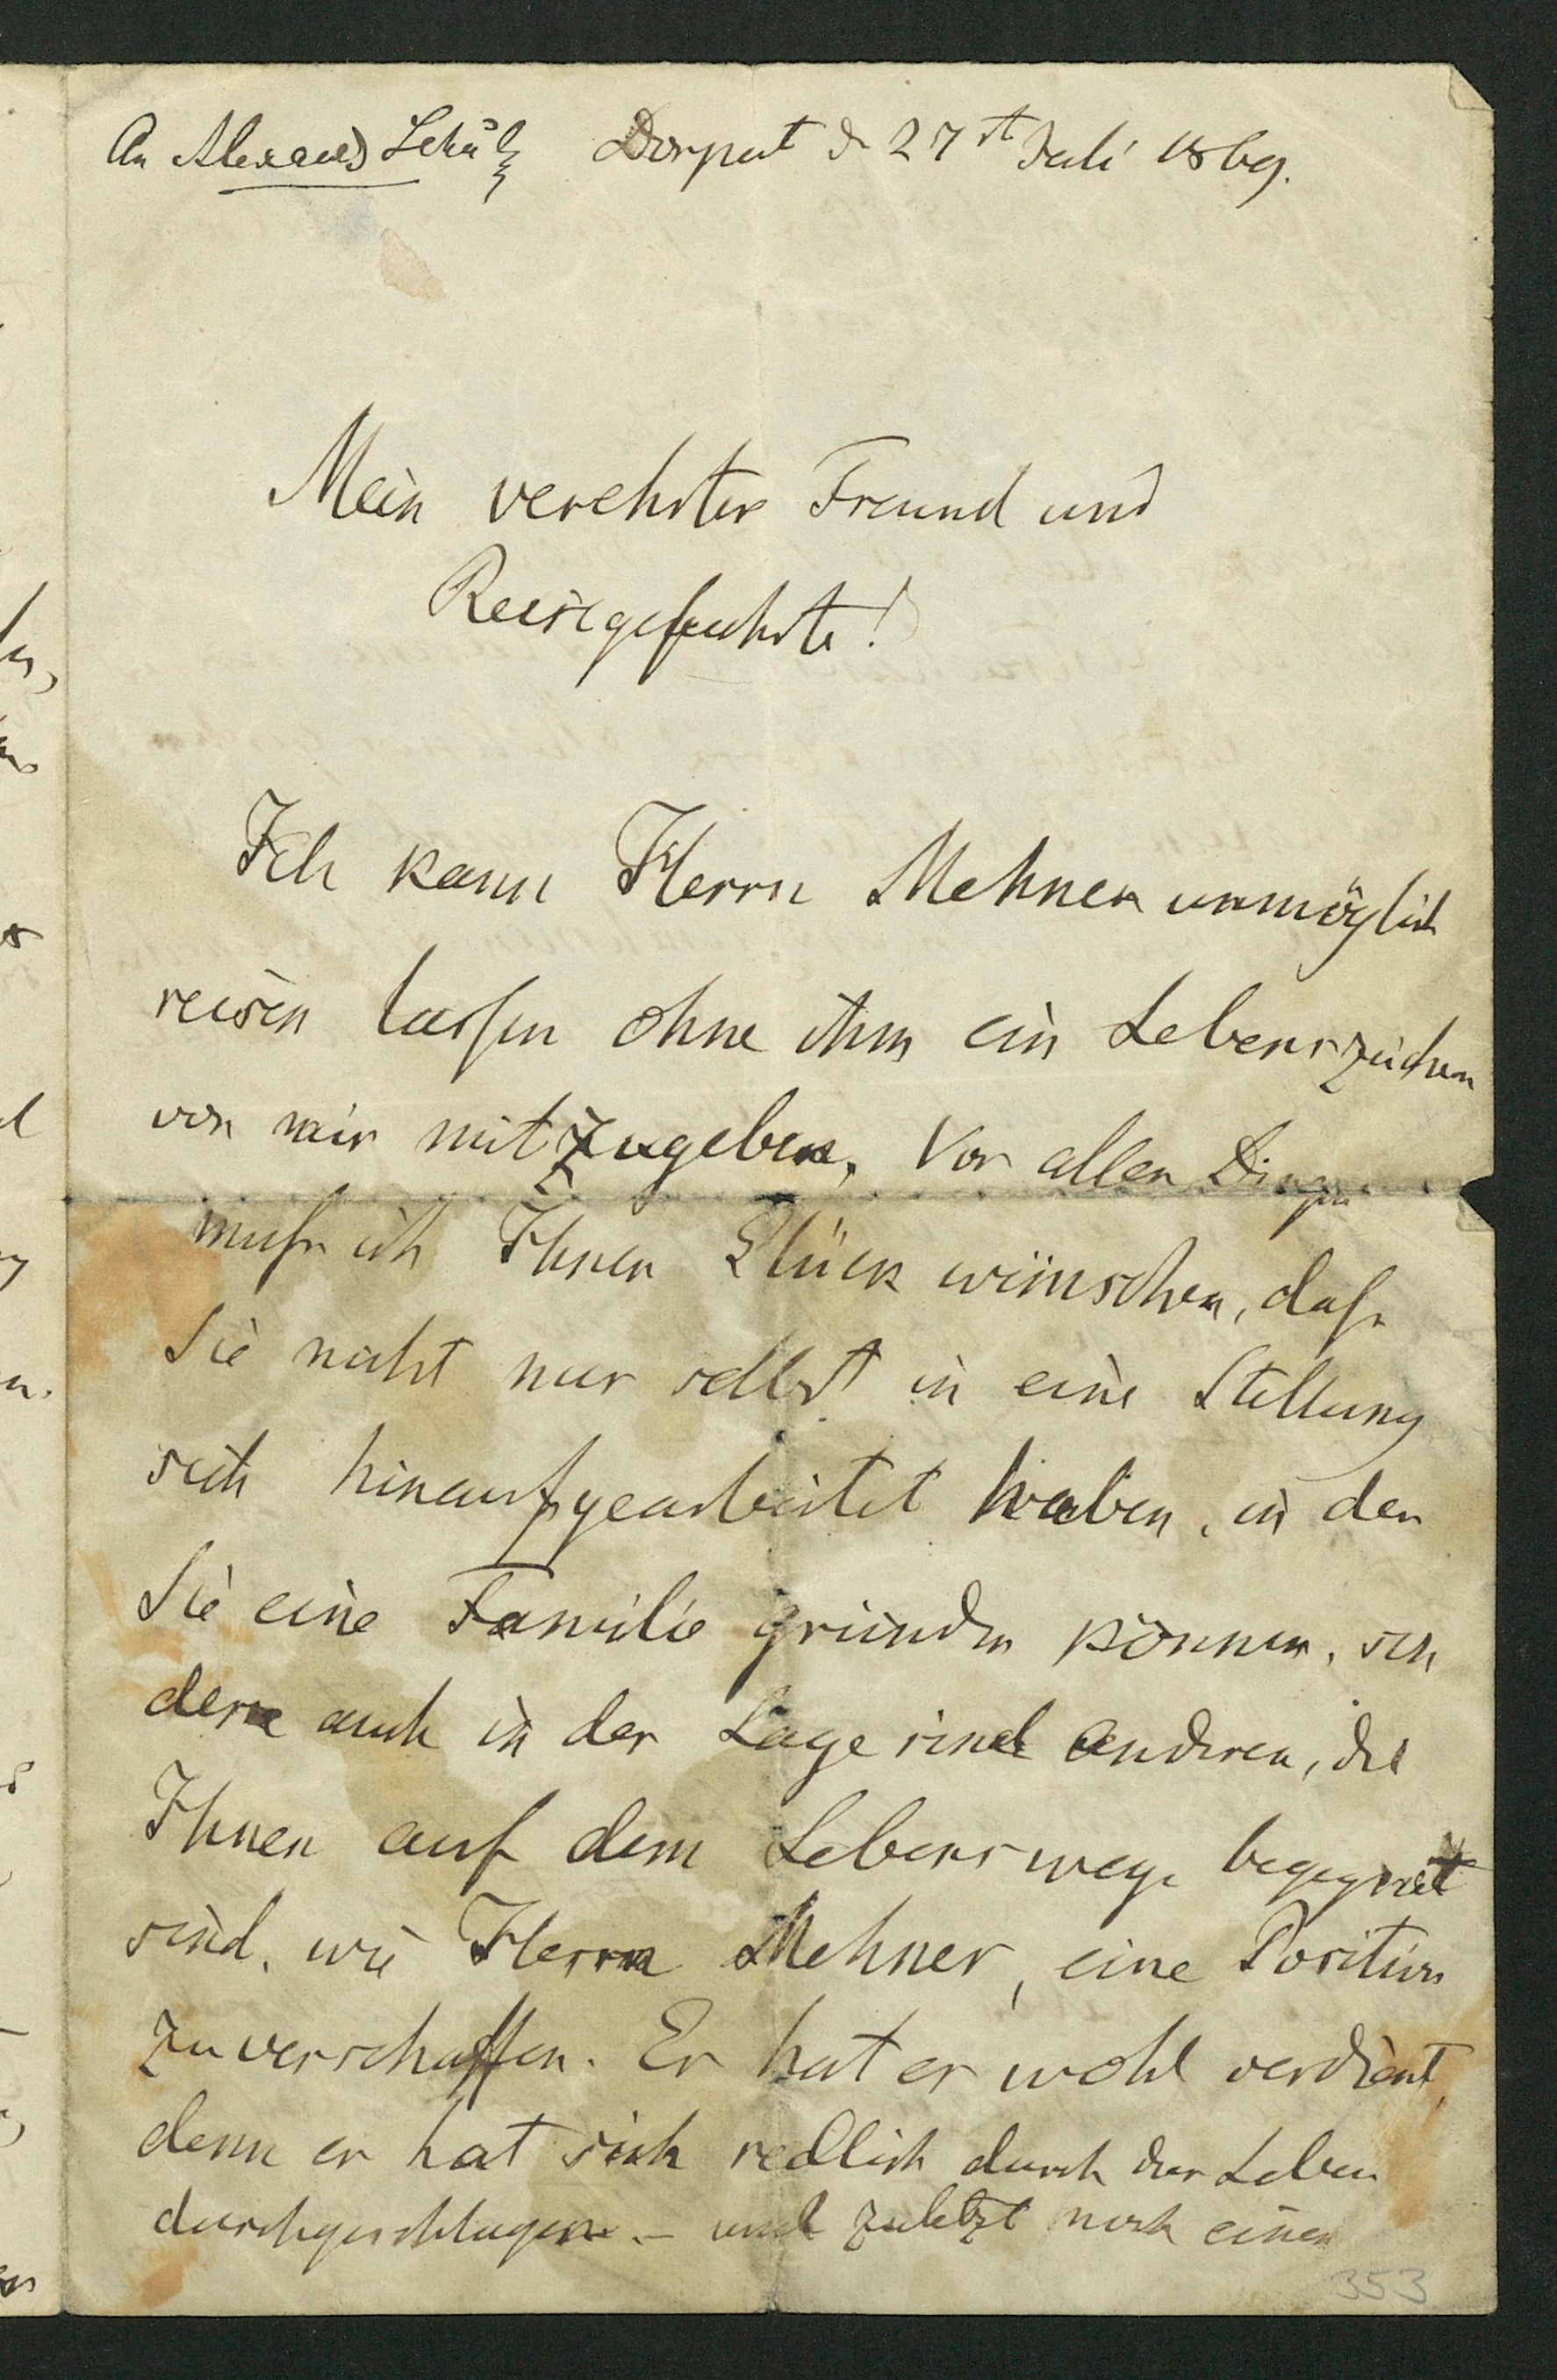 An Alexand Schultz Dorpat d 27st Juli 1869.
Mein verehrter Freund und
Reisegefährte!
Ich kann Herrn Mehner unmöglich
reisen lassen ohne ihm ein Lebenszeichen
von mir mitzugeben. Vor allen Dingen
muss ich Ihnen Glück wünschen, dass
Sie nicht nur selbst in eine Stellung
sich hinaufgearbeitet haben, in der
Sie eine Familie gründen können, son
dern auch in der Lage sind anderen, die
Ihnen auf dem Lebenswege begegnet
sind, wie Herrn Mehner, eine Position
zu verschaffen. Er hat es wohl verdient,
denn er hat sich redlich durch das Leben
durchgeschlagen – und zuletzt noch einen
353